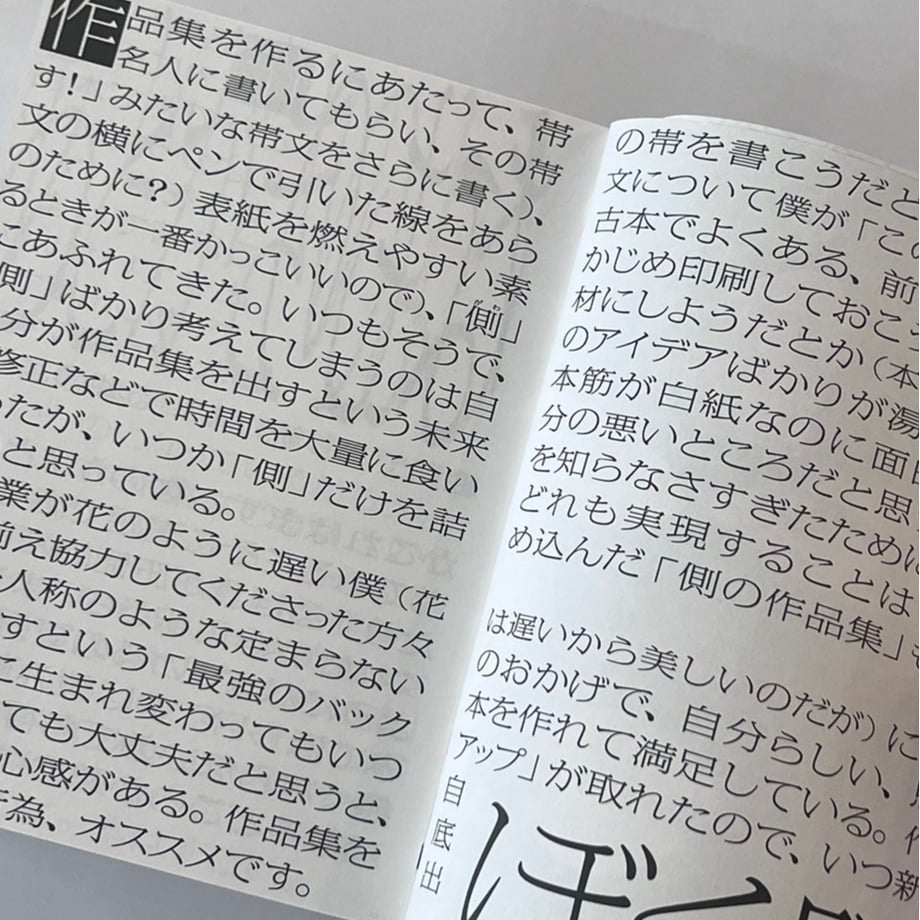 作品集を作るにあたって、帯の帯を書こうだと
名人に書いてもらい、その帯文について僕が「この
す！」みたいな帯文をさらに書く)、古本でよくある、前
文の横にペンで引いた線をあらかじめ印刷しておこ
のために？)表紙を燃えやすい素材にしようだとか(本
るときが一番かっこいいので)、「側」のアイデアばかりが湯
にあふれてきた。いつもそうで、本筋が白紙なのに面
側」ばかり考えてしまうのは自分の悪いところだと思
分が作品集を出すという未来を知らなさすぎたために
修正などで時間を大量に食いどれも実現することは
ったが、いつか「側」だけを詰め込んだ「側の作品集」
と思っている。
業が花のように遅い僕(花は遅いから美しいのだが)に
え協力してくださった方々のおかげで、自分らしい、
人称のような定まらない本を作れて満足している。
すという「最強のバックアップ」が取れたので、いつ新
に生まれ変わってもいつ自
ても大丈夫だと思うと、底
心感がある。作品集を出
為、オススメです。
ぼく